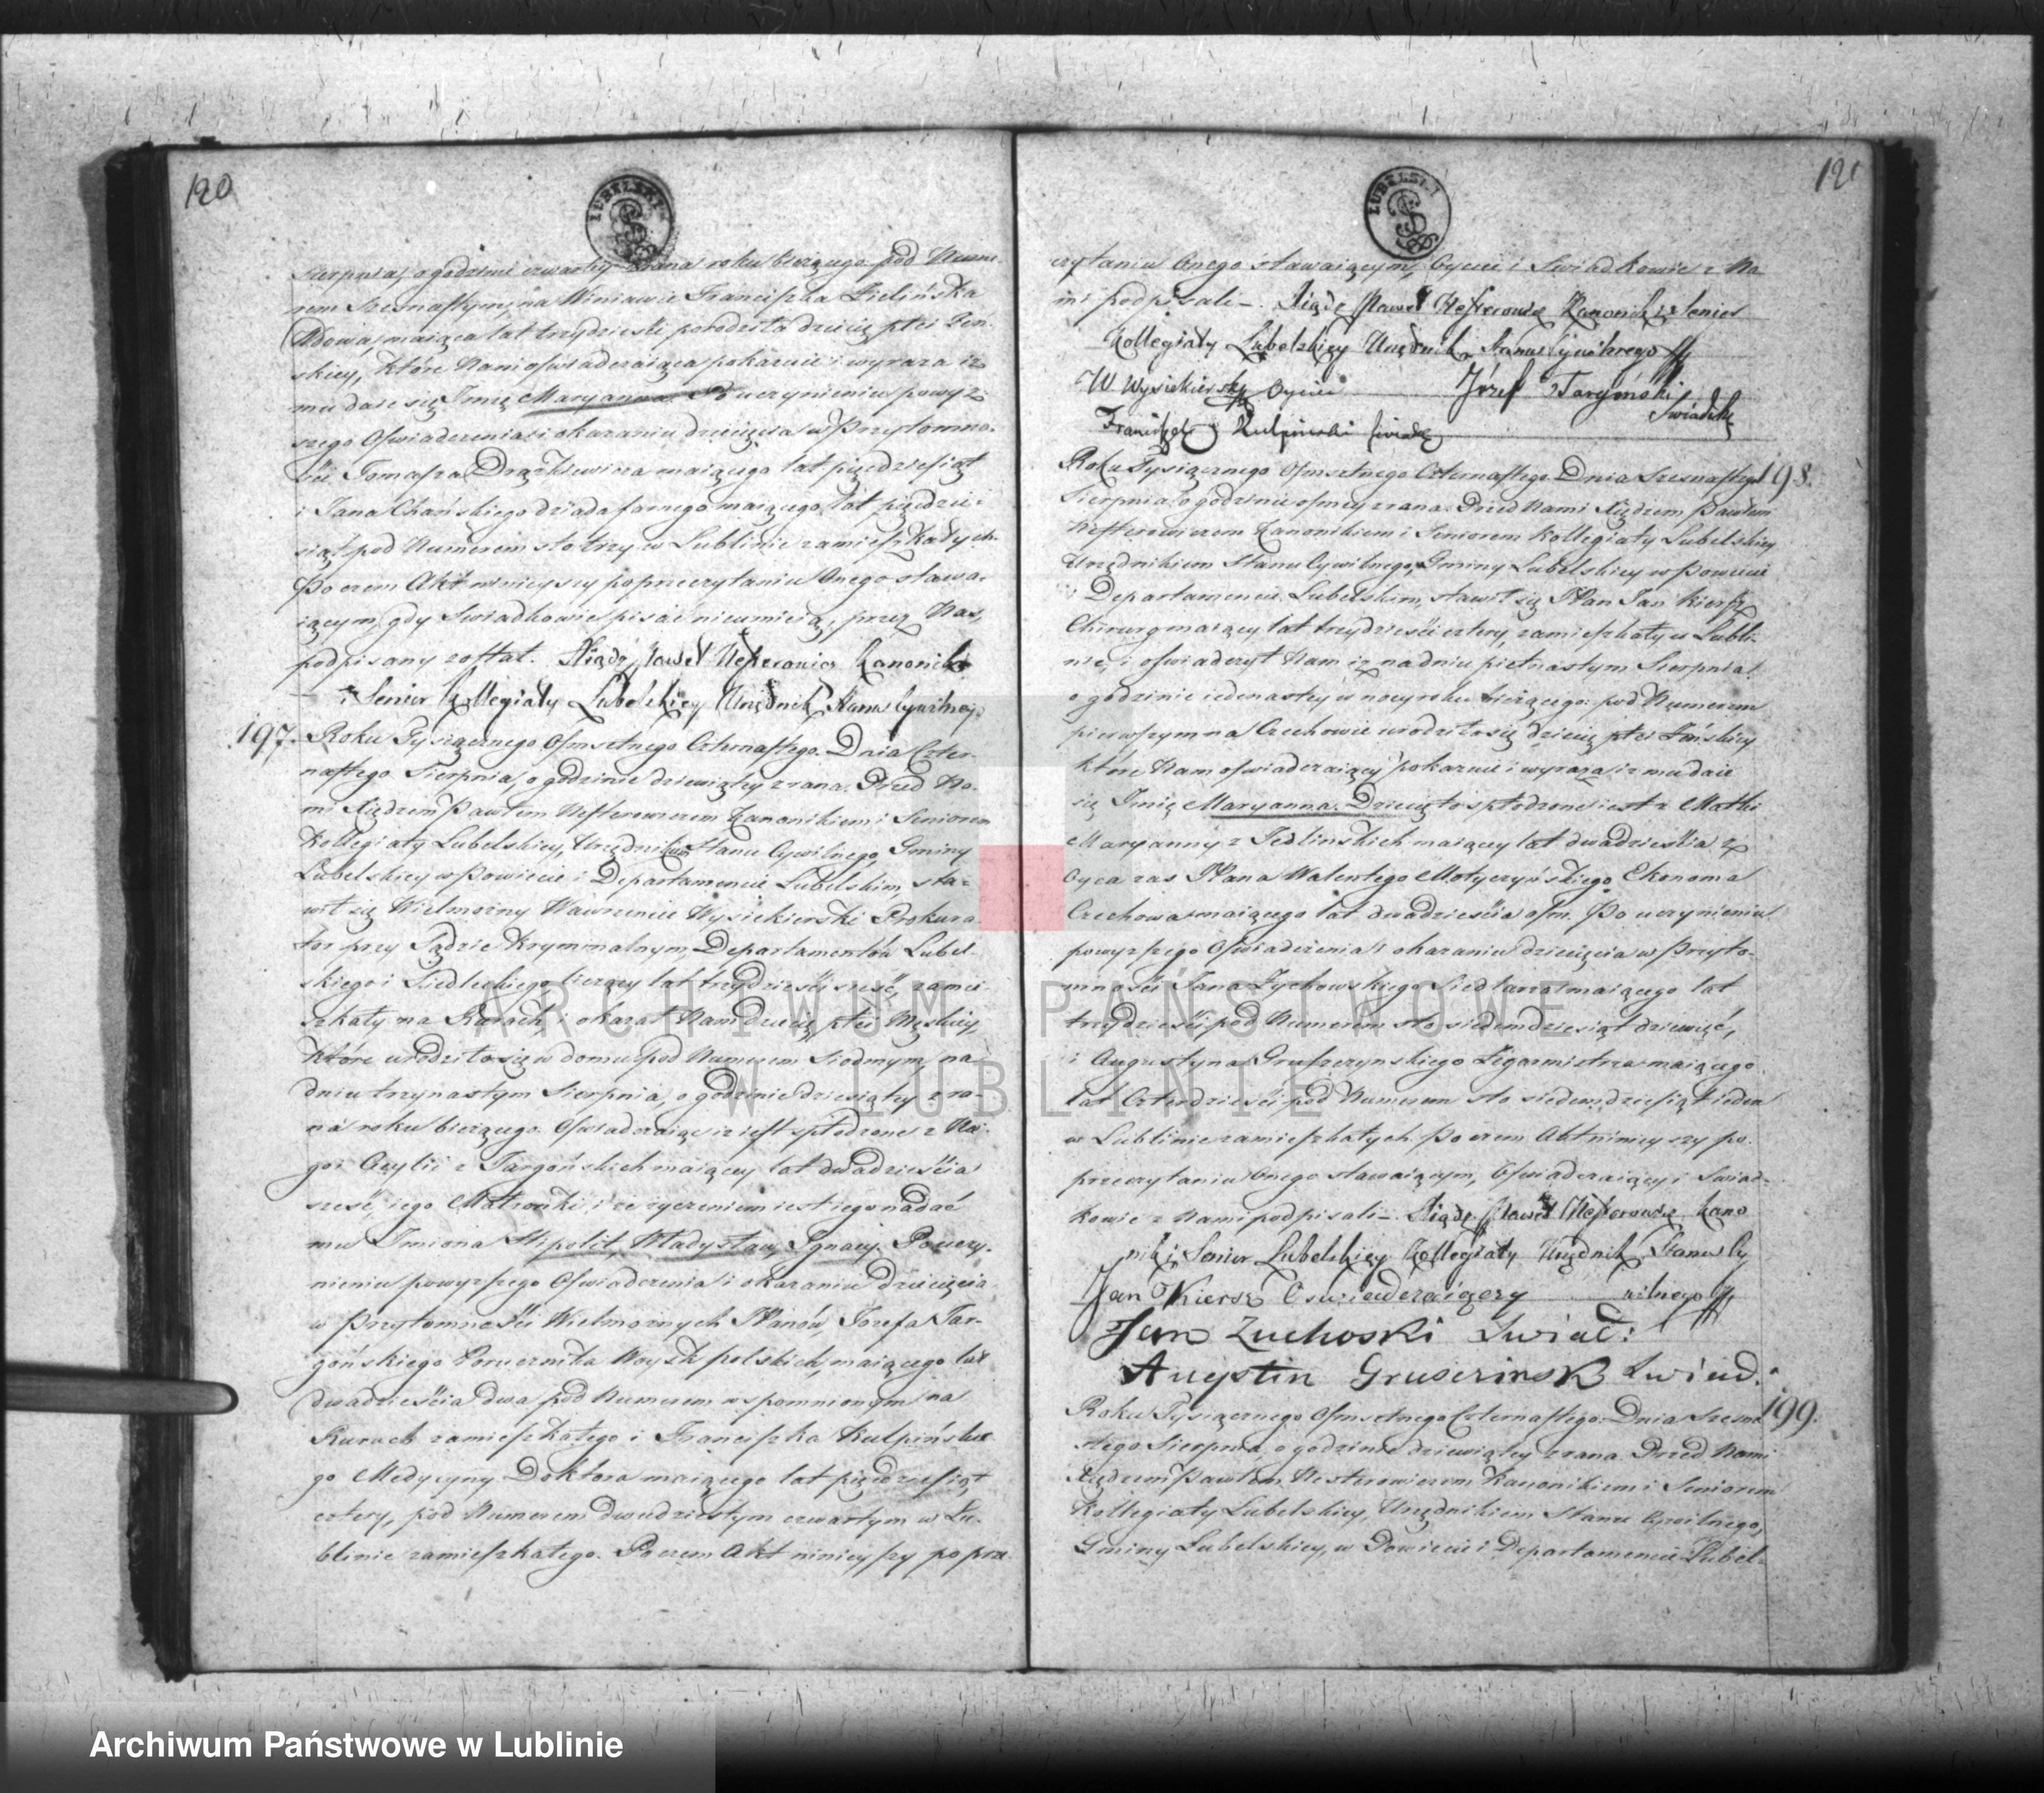 120
LUBELSKI
sierpnia, o godzinie czwartey zrana roku bieżącego pod Nume
rem Szesnastym, na Winiawie Franciszka Zielińska
Wdowa, maiąca lat trzydzieści porodziła dziecię płci Żeń-
skiey, które Nam oświadczaiąca pokazuie i wyraża iż
mu daie się Imię Maryanna. Po uczynieniu powyż
szego Oświadczenia i okazaniu dziecięcia w Przytomno-
ści Tomasza Drążkiewicza maiącego lat pięćdziesiąt
i Jana Chańskiego dziada farnego maiącego lat pięćdzie-
siąt pod Numerem sto trzy w Lublinie zamieszkałych.
Poczem Akt ninieyszy po przeczytaniu Onego stawa-
iącym, gdy Swiadkowie pisać nieumieią, przez Nas,
podpisany został. Xiądz Paweł Nesterowicz Kanonik
i Senior Kollegiaty Lubelskiey Urzędnik Stanu Cywilnego
197. Roku Tysiącznego Osmsetnego Czternastego. Dnia Czter-
nastego Sierpnia, o godzinie dziewiątey zrana. Przed Na-
mi Xiędzem Pawłem Nesterowiczem Kanonikiem i Seniorem
Kollegiaty Lubelskiey, Urzędnikiem Stanu Cywilnego, Gminy
Lubelskiey w Powiecie i Departamencie Lubelskim, sta-
wił się Wielmożny Wawrzeniec Wysiekierski Prokura-
tor przy Sądzie Kryminalnym Departamentów Lubel-
skiego i Siedleckiego liczący lat trzydzieści sześć, zamie
szkały na Kurach i okazał Nam dziecię płci Męskiey,
które urodziło się w domu pod Numerem Siodmym, na
dniu trzynastym Sierpnia, o godzinie dziesiątey zra-
na roku bieżącego. Oświadczaiąc iż iest spłodzone z Nie-
go i Cecylii z Targońskich maiącey lat dwadzieścia
sześć, iego Małżonki, i że życzeniem iest iego nadać
mu Imiona Hipolit, Władysław, Ignacy. Po uczy-
nieniu powyższego Oświadczenia i okazaniu dziecięcia
w Przytomności Wielmożnych Panów, Józefa Tar-
gońskiego Porucznika Woysk polskich, maiącego lat
dwadzieścia dwa pod Numerem wspomnionym na
Kurach zamieszkałego i Franciszka Kulpińskie
go Medycyny Doktora maiącego lat pięćdziesiąt
cztery, pod Numerem dwudziestym czwartym w Lu-
blinie zamieszkałego. Poczem Akt ninieyszy po prze
121
LUBELSKI
czytaniu Onego stawaiącym, Oyciec i Swiadkowie z Na
mi podpisali -. Xiądz Paweł Nesterowicz Kanonik i Senior
Kollegiaty Lubelskiey Urzędnik Stanu Cywilnego
W Wysiekierski Oyciec Józef Targoński
Swiadek
Franciszek Kulpinski swiadek
Roku Tysiącznego Osmsetnego Czternastego Dnia Szesnastego 198.
Sierpnia o godzinie osmey zrana. Przed Nami Xiędzem Pawłem
Nesterowiczem Kanonikiem i Seniorem Kollegiaty Lubelskiey
Urzędnikiem Stanu Cywilnego, Gminy Lubelskiey w Powiecie
i Departamencie Lubelskim, stawił się Pan Jan Kiersz
Chirurg maiący lat trzydzieści cztery, zamieszkały w Lubli-
nie, i oświadczył Nam iż na dniu piętnastym Sierpnia
o godzinie iedenastey w nocy roku bieżącego pod Numerem
pierwszym na Czechowie urodziło się dziecię płci Żeńskiey
które Nam oświadczaiący pokazuie i wyraża iż mu daie
się Imię Maryanna. Dziecię to spłodzone iest z Matki
Maryanny z Jedlińskich maiącey lat dwadzieścia z
Oyca zas Pana Walentego Motyczyńskiego Ekonoma
Czechowa maiącego lat dwadzieścia osm. Po uczynieniu
powyższego Oświadczenia i okazaniu dziecięcia w Przyto-
mności Jana Żychowskiego Siedlarza maiącego lat
trzydzieści pod Numerem sto siedmdziesiąt dziewięć,
i Augustyna Gruszczynskiego Zegarmistrza maiącego
lat Czterdzieści pod Numerem sto siedmdziesiąt ieden
w Lublinie zamieszkałych. Poczem Akt ninieyszy po
przeczytaniu Onego stawaiącym, Oświadczaiący i Swiad-
kowie z Nami podpisali -. Xiądz Paweł Nesterowicz Kano
nik i Senior Lubelskiey Kollegiaty Urzędnik Stanu Cy
Jan Kiersz Oswiadczaiączy wilnego
Jan Zuchoski Swiad:
Augystin Gruscinsk Swiad.
Roku Tysiącznego Osmsetnego Czternastego. Dnia Szesna 199.
stego Sierpnia o godzinie dziewiątey zrana. Przed Nami
Xiędzem Pawłem Nesterowiczem Kanonikiem i Seniorem
Kollegiaty Lubelskiey, Urzędnikiem Stanu Cywilnego,
Gminy Lubelskiey, w Powiecie i Departamencie Lubel-
ARCHIWUM PAŃSTWOWE
W LUBLINIE
Archiwum Państwowe w Lublinie